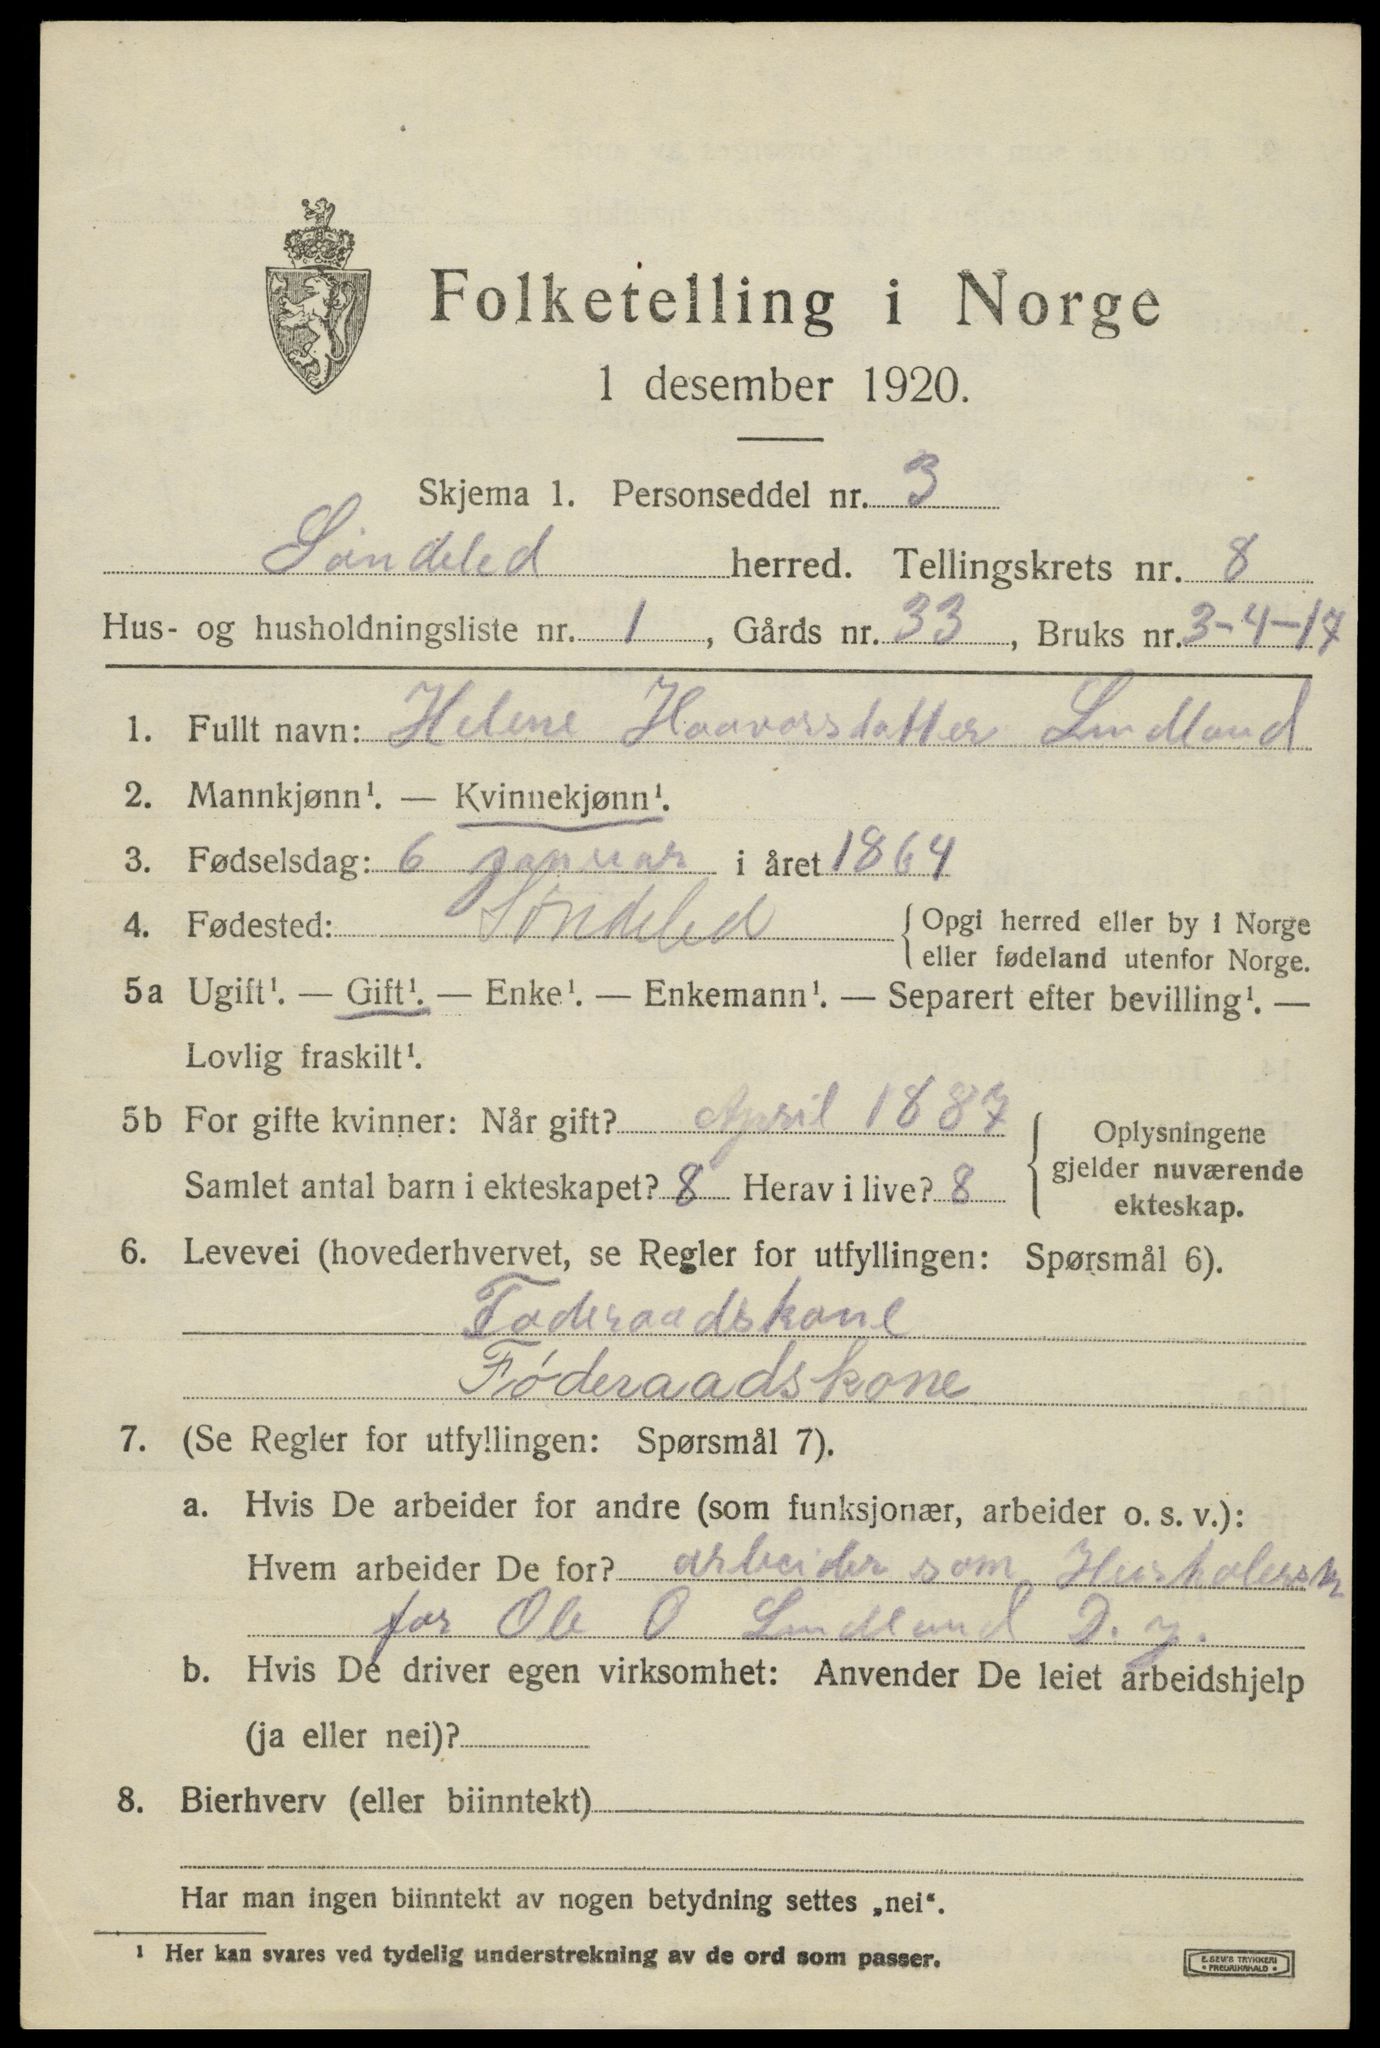 Folketelling i Norge
1 desember 1920.
Skjema 1. Personseddel nr. 3
Søndeled herred. Tellingskrets nr. 8
Hus- og husholdningsliste nr. 1, Gårds nr. 33, Bruks nr. 3-4-17
1. Fullt navn: Helene Haavorsdatter Lindland
2. Mannkjønn¹. — Kvinnekjønn¹.
3. Fødselsdag: 6 januar i året 1864
4. Fødested: Søndeled { Opgi herred eller by i Norge
eller fødeland utenfor Norge.
5a Ugift¹. — Gift¹. — Enke¹. — Enkemann¹. — Separert efter bevilling¹. —
Lovlig fraskilt¹.
5b For gifte kvinner: Når gift? April 1887
Samlet antal barn i ekteskapet? 8 Herav i live? 8
{ Oplysningene
gjelder nuværende
ekteskap.
6. Levevei (hovederhvervet, se Regler for utfyllingen: Spørsmål 6).
Föderaadskone
Føderaadskone
7. (Se Regler for utfyllingen: Spørsmål 7).
a. Hvis De arbeider for andre (som funksjonær, arbeider o. s. v.):
Hvem arbeider De for? arbeider som
for Ole O Lindland D. y.
b. Hvis De driver egen virksomhet: Anvender De leiet arbeidshjelp
(ja eller nei)?
8. Bierhverv (eller biinntekt)
Har man ingen biinntekt av nogen betydning settes „nei“.
¹ Her kan svares ved tydelig understrekning av de ord som passer.
E. SEM'S TRYKKERI
• FREDRIKSHALD •